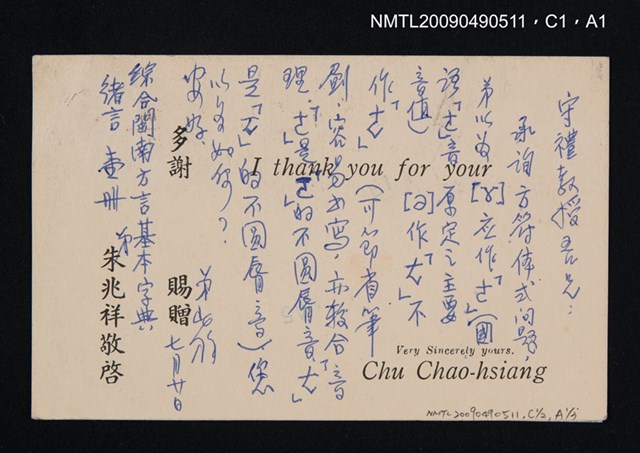 NMTL20090490511，C1，A1
守禮教授吾兄：
承詢方符体式问题，
弟以為[ɤ]應作「ㄜ」（國
語「ㄜ」音原定之主要
音值）[ə]作「ㄤ」不
作「ㄤ」（可節省筆
劃，容易书寫，亦較合音
理。「ㄜ」是「ㄛ」的不圓唇音，「ㄤ」
是「ㄤ」的不圓唇音）您
以為如何？
安好。
弟
七月廿日
綜合閩南方言基本字典
緒言 壹冊
多謝 賜贈
弟 朱兆祥敬啓
I thank you for your
Very Sincerely yours.
Chu Chao-hsiang
NMTL20090490511, C1/2, A1/3